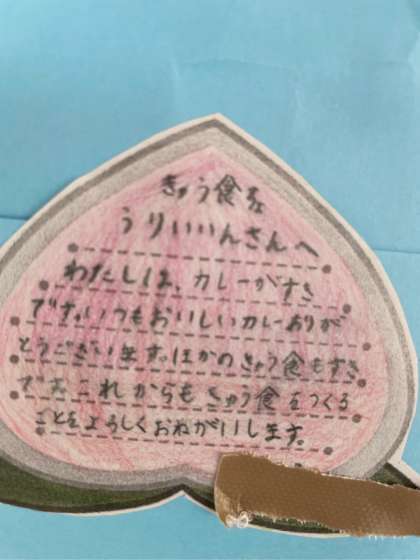 きゅう食を
うりいいんさんへ
わたしは、カレーがすき
です。いつもおいしいカレーおりが
とうございます。ほかのきゅう食もすき
です。これからもきゅう食をつくる
ことをよろしくおねがいします。